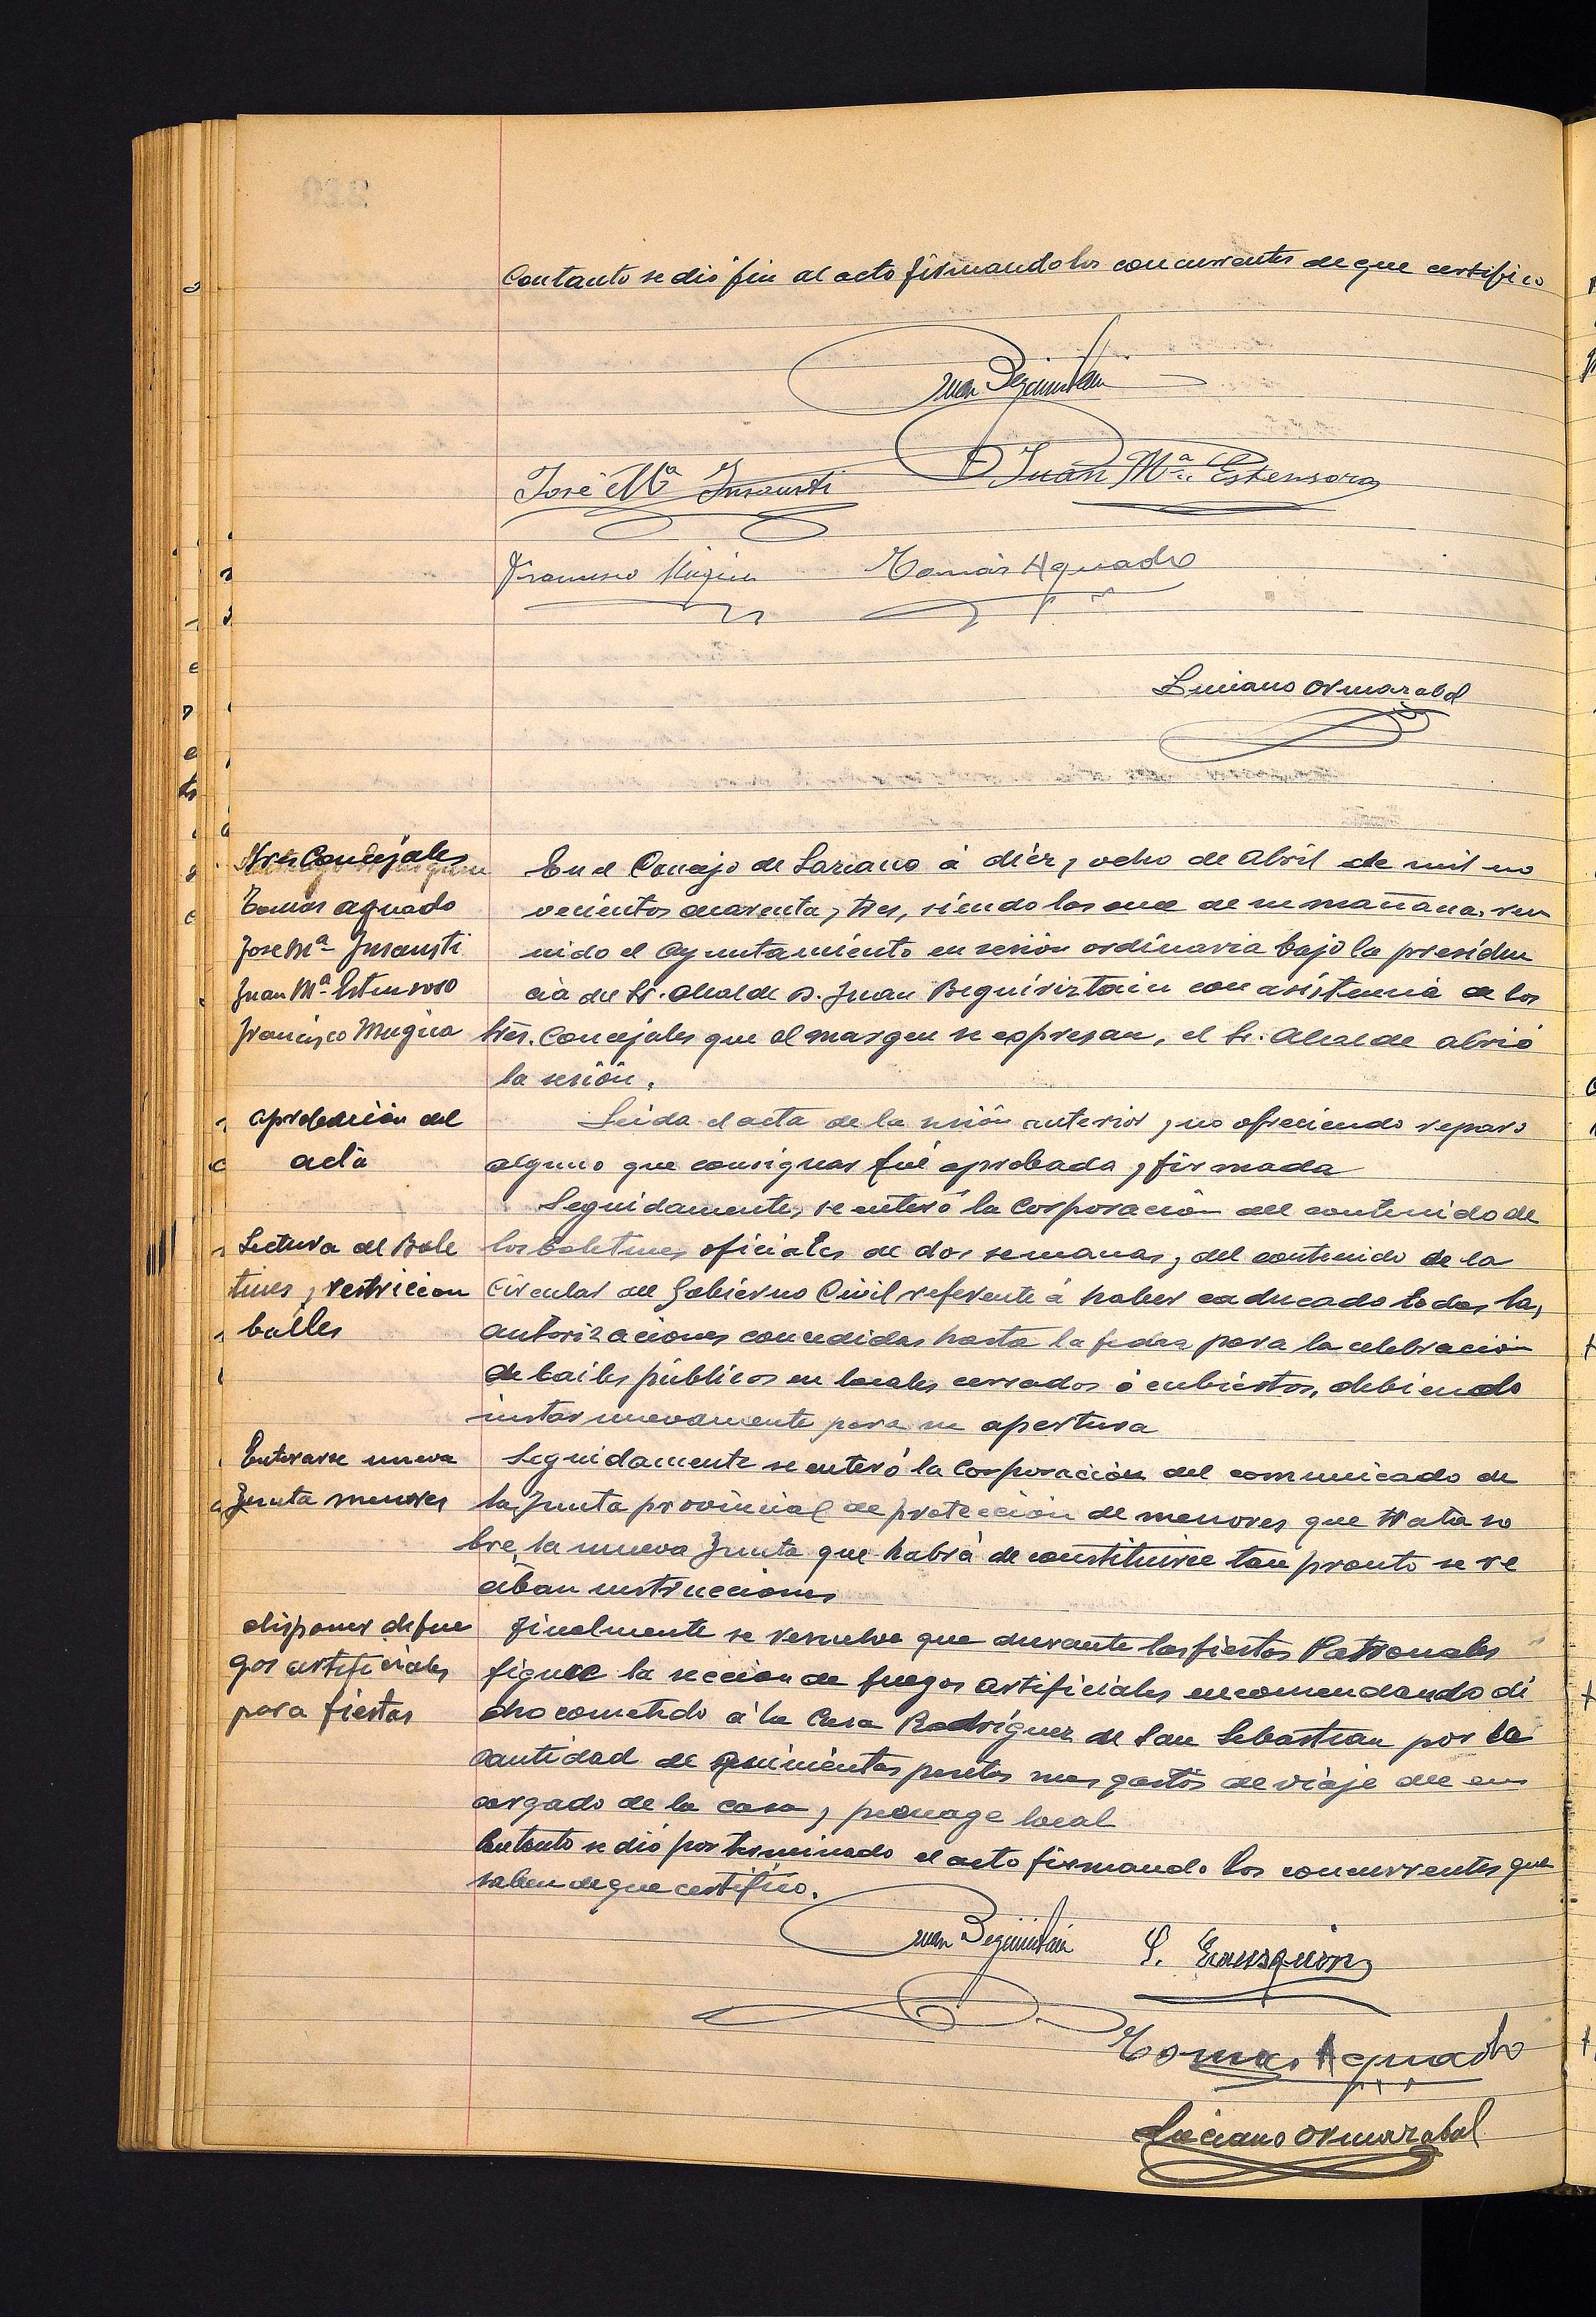 Con tanto se dió fin al acto firmando los concurrentes de que certifico
Juan Beguiristain
José Mª Insausti
Juan Mª Estensoro
Francisco Múgica
Tomás Aguado
Luciano Ormazabal
Sres Concejales
En el Concejo de Lazcano á diez y ocho de Abril de mil no
Tomás Aguado
vecientos cuarenta y tres, siendo las once de su mañana, reu
Jose Mª Insausti
nido el Ayuntamiento en sesión ordinaria bajo la presiden
Juan Mª Estensoro
cia del Sr. Alcalde D. Juan Beguiriztain con asistencia de los
Francisco Mugica
Sres. Concejales que al margen se expresan, el Sr. Alcalde abrió
la sesión.
aprobación del
acta
Leida el acta de la sesión anterior y no ofreciendo reparo
alguno que consignar fué aprobada y firmada
Seguidamente, se enteró la Corporación del contenido de
Lectura del Bole
los boletines oficiales de dos semanas, y del contenido de la
tines y restriccion
circular del Gobierno Civil referente á haber caducado todas las
bailes
autorizaciones concedidas hasta la fecha para la celebración
de bailes públicos en locales cerrados ó cubiertos, debiendo
instar nuevamente para su apertura
Enterarse nueva
Seguidamente se enteró la Corporación del comunicado de
Junta menores
la Junta provincial de protección de menores que trata so
bre la nueva Junta que habrá de constituirse tan pronto se re
ciban instrucciones
disponer de fue
gos artificiales
para fiestas
Finalmente se resuelve que durante las fiestas Patronales
figure la sección de fuegos artificiales encomendando di
cho cometido á la Casa Rodríguez de San Sebastian por la
cantidad de quinientas pesetas mas gastos de viaje del en
cargado de la casa y peonage local
Con tanto se dió por terminado el acto firmando los concurrentes que
saben de que certifico.
Juan Beguiristain
Tomas Aguado
Luciano Ormazabal